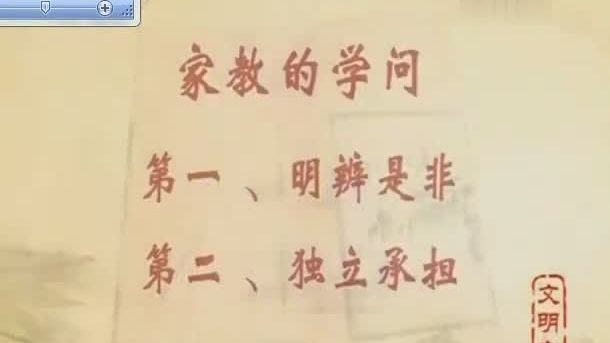 家教的学问
第一、明辨是非
第二、独立承担
文明